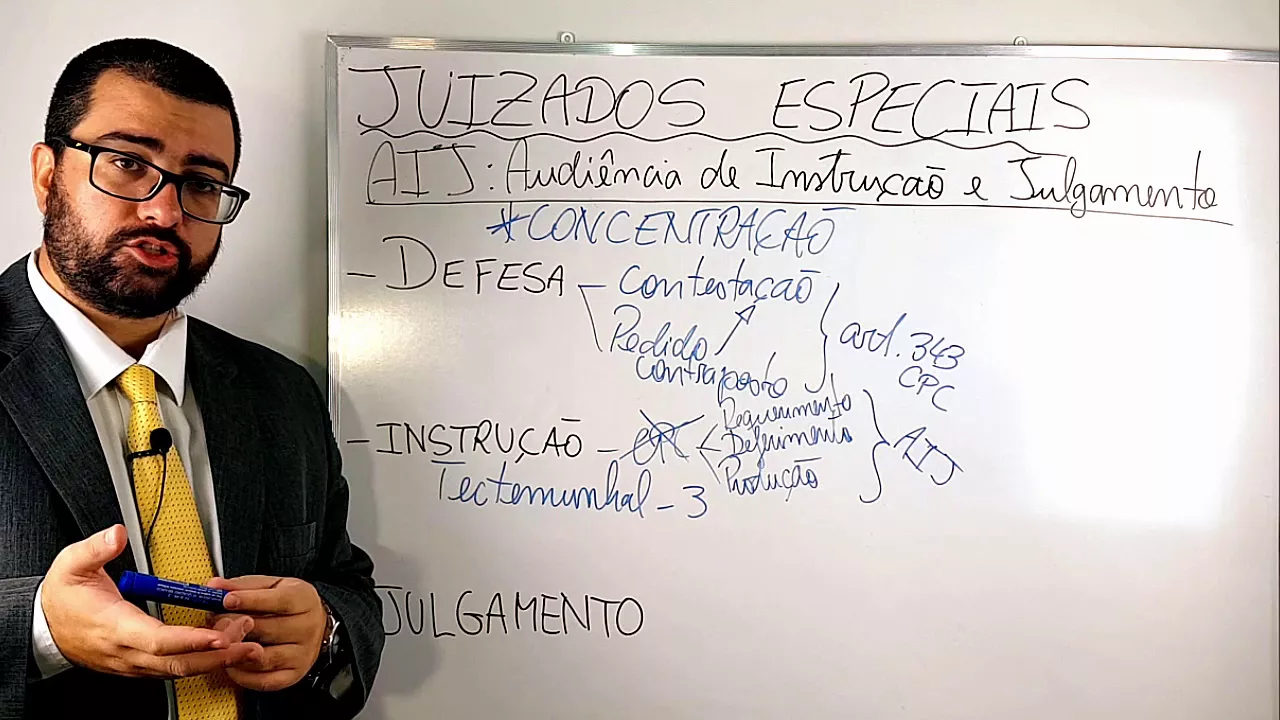 JUIZADOS ESPECIAIS
AIJ: Audiência de Instrução e Julgamento
*CONCENTRAÇÃO
- DEFESA - Contestação
Pedido
Contraposto
art. 343
CPC
- INSTRUÇÃO -
Requerimento
Deferimento
Produção
AIJ
Testemunhal - 3
JULGAMENTO